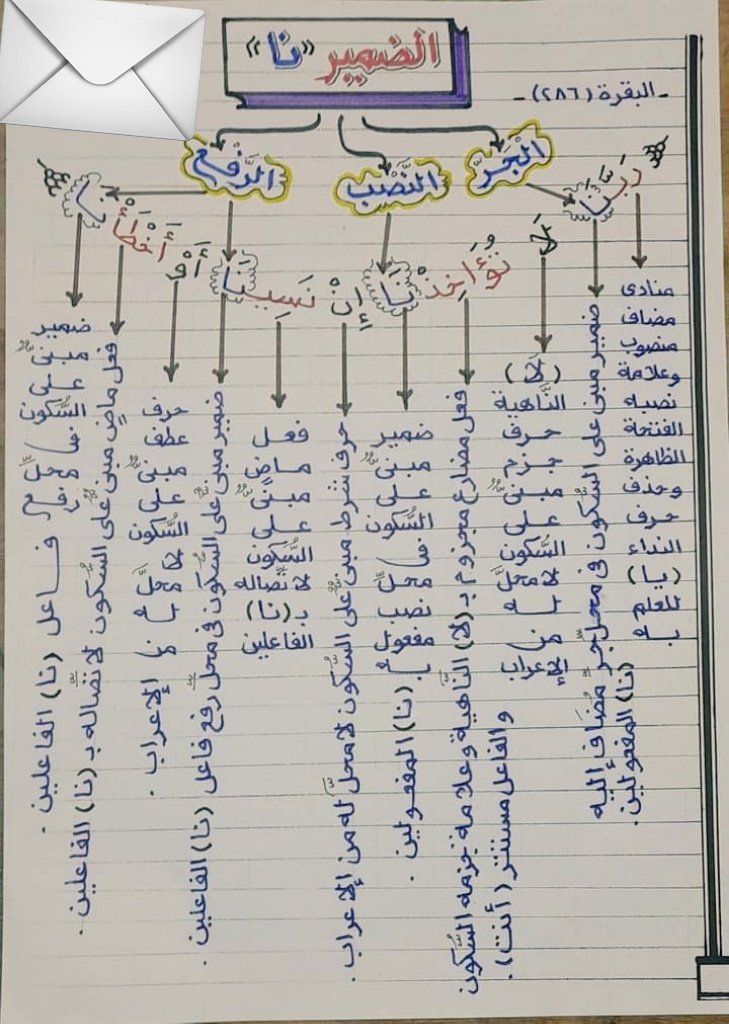 الضمير «نا»
- البقرة (٢٨٦) -
الجَرّ
النَّصْب
الرَّفْع
رَبَّنَا لَا تُؤَاخِذْنَا إِنْ نَسِينَا أَوْ أَخْطَأْنَا
منادى
مضاف
منصوب
وعلامة
نصبه
الفتحة
الظاهرة
وحذف
حرف
النداء
(يا)
للعلم
به
ضمير مبنىٌّ على السُّكون فى محل جرٍّ مُضاف إليه
(نا) المفعولين.
(لا)
النَّاهية
حرف
جزم
مبنىٌّ
على
السُّكون
لا محلَّ
له
من
الإعراب
فعل مضارع مجزوم بـ (لا) النَّاهية وعلامة جزمه السُّكون
والفاعل مستتر (أنت).
ضمير
مبنىٌّ
على
السُّكون
فى
محلِّ
نصب
مفعول
به
(نا) المفعولين.
حرف شرط مبنىٌّ على السُّكون لا محلَّ له من الإعراب.
فعل
ماضٍ
مبنىٌّ
على
السُّكون
لاتِّصاله
بـ (نا)
الفاعلين
ضمير مبنىٌّ على السُّكون فى محل رفع فاعل (نا) الفاعلين.
حرف
عطف
مبنىٌّ
على
السُّكون
لا محلَّ
له
من
الإعراب.
فعل ماضٍ مبنىٌّ على السُّكون لاتِّصاله بـ (نا) الفاعلين.
ضمير
مبنىٌّ
على
السُّكون
فى
محلِّ
رفع
فاعل (نا) الفاعلين.